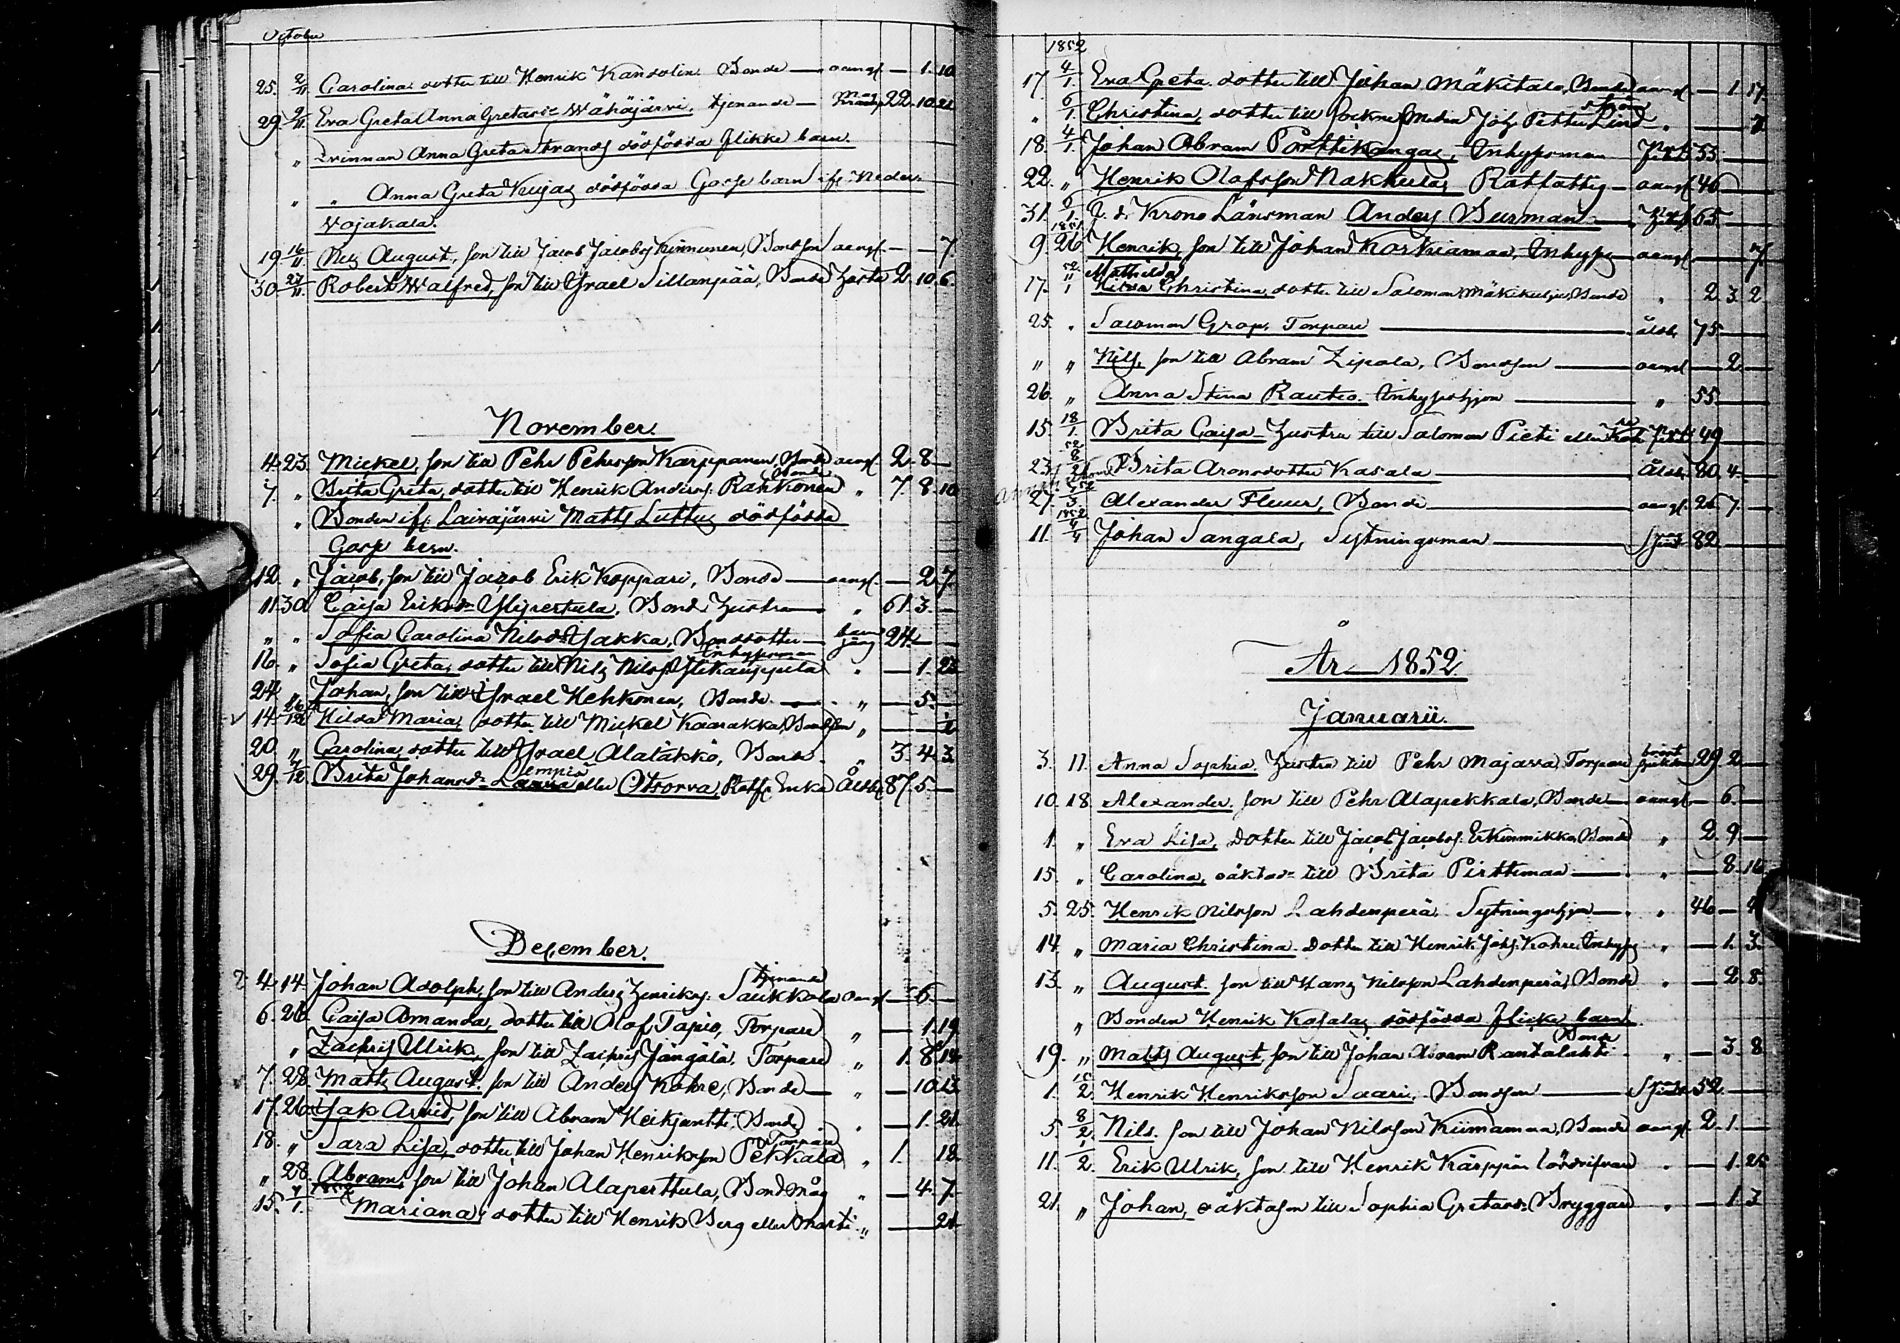 October
25. 2/11 Carolina dotter till Henrik Kandolin Bonde — aangf — 1. 10
29. 9/11 Eva Greta Anna Gretasdr Wähäjärvi, tjenande — 22. 10. 22
" Qvinnan Anna Greta Strands dödfödda flikke barn.
" " Anna Greta Kujas dödfödda Gosse barn ifr. Neder
Wojakala.
19 16/11 Nils August, son till Jacob Jacobss Kinnunen, Bondson aangf — 7.
30. 27/11 Robert Walfred, son till Israel Sillanpää, Bonde 2. 10. 6.
November.
4. 23. Mickel, son till Pehr Pehrsson Karppanen, Bonde aangf. 2. 8 —
Bonde
7. " Brita Greta, dotter till Henrik Anderss. Rahkonen " 7. 8. 10
" Bonden ifr. Laivajärvi Matts Luttus dödfödda
Gosse barn.
12. " Jacob, son till Jacob Erik Koppari, Bonde — aangf. — 2. 7.
11. 30. Caisa Eriksdr Ylipertula, Bonde Hustru — " 61. 3. —
" " Sofia Carolina Nilsdr Jakka, Bondedotter — barn säng 24. —
Inhysman
16. " Sofia Greta, dotter till Nils Nilss Ylikauppila " — 1. 22
24. " Johan, son till Israel Hehkonen, Bonde — " — 5. —
14. 16/12 Hilda Maria, dotter till Mickel Kaarakka, Bondson "
20. " Carolina, dotter till Israel Alatakko, Bonde " 3. 4. 3.
Lempia
29. 7/12 Brita Johansdr eller Otsorva, Rotf. Enka Åldr 87. 5. —
December.
tjenande
4. 14. Johan Adolph, son till Anders Henriks. Saukkola aangf — 6. —
6. 26. Caisa Amanda, dotter till Olof Tapio, Torpare " — 1. 19
" Zachris Ulrik, son till Zachris Jängälä, Torpare " 1. 8. 14
7. 28. Matts August, son till Anders Kohre, Bonde — " — 10. 13.
17. 26. Isak Arvid, son till Abram Heikjantti, Bonde " — 1. 21.
Torpare
18. " Sara Lisa, dotter till Johan Henriksson Pekkala " 1. 18.
" 28. Abram, son till Johan Alaperttula, Bondmåg " — 4. 7.
1852
15. 7/1. Mariana, dotter till Henrik Berg eller " — 21.
1852
17 4/1. Eva Greta dotter till Johan Mäkitalo, Bonde aangf — 1. 17.
ström
" 6/1. Christina, dotter till Socknesmeden Joh. Petter Lind "
18. 4/1. Johan Abram Porttikangas, Inhysman 55 —
22. " Henrik Olofsson Nakkulas Rotfattig — aangf 46 —
31. 6/1. v. d. Krono Länsman Anders Burman — 65 —
1851
9. 26 Henrik, son till Johan Korkiamaa, Inhys — aangf — 7.
52
Mathilda
17. 11/1 Christina, dotter till Salomon Mäkikuljes, Bonde " 2. 3. 2.
25. " Salomon Grape, Torpare — åldr 75 —
" " Nils, son till Abram Zipola, Bondson — aangf — 2 —
26. " Anna Stina Rautio. Inhyshjon — " 55 —
15. 18/1. Brita Caisa, Hustru till Salomon Pieti eller 49 —
52
23. Brita Aronsdotter Kasala — Åldr. 80. 4 —
52
27. Alexander Fleuer, Bonde — aangf. 26 7. —
1852
11. 4/4 Johan Sangala, Sytningsman — 82 —
År 1852
Januarii.
3. 11. Anna Sophia, Hustru till Pehr Majava, Torpare 29 2 —
10. 18. Alexander, son till Pehr Alapekkala, Bonde — aangf — 6. —
1. " Eva Lisa, Dotter till Jacob Jacobss. Erkinmikka, Bonde " 2. 9 —
15. " Carolina, oäkta dr till Brita Pirttimaa — " — 8. 16
5. 25. Henrik Nilsson Lahdenperä, Sytningshjon — " 46 —
14. " Maria Christina. Dotter till Henrik Johs. Kohre, Inhys " — 1. 3.
13. " August. son till Hans Nilsson Lahdenperä, Bonde " — 2. 8.
" Bonden Henrik Kasalas dödfödda flicke barn.
Bonde
19. " Matts August, son till Johan Abram Rantalahti — " — 3. 8.
1. 15/2. Henrik Henriksson Saari, Bondson — 52 —
5. 8/2. Nils. son till Johan Nilsson Kiimamaa, Bonde aangf. 2. 1. —
11. 1/2. Erik Ulrik, son till Henrik Kärppä " — 1. 25
21. " Johan, oäkta son till Sophia Gretasdr. Bryggare " — 1. 3